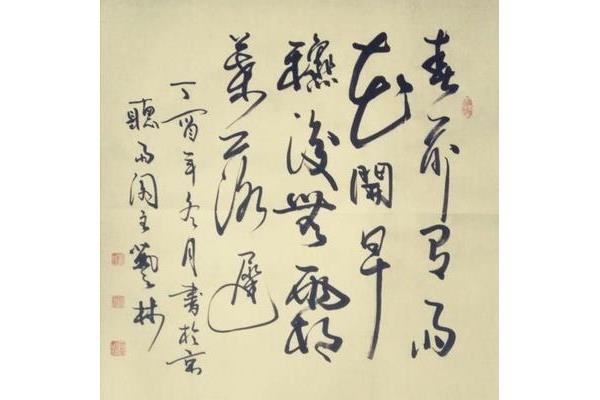 春前有雨
花開早
穐後無霜
葉落遲
丁酉年冬月書於京
聽雨閣主藝林